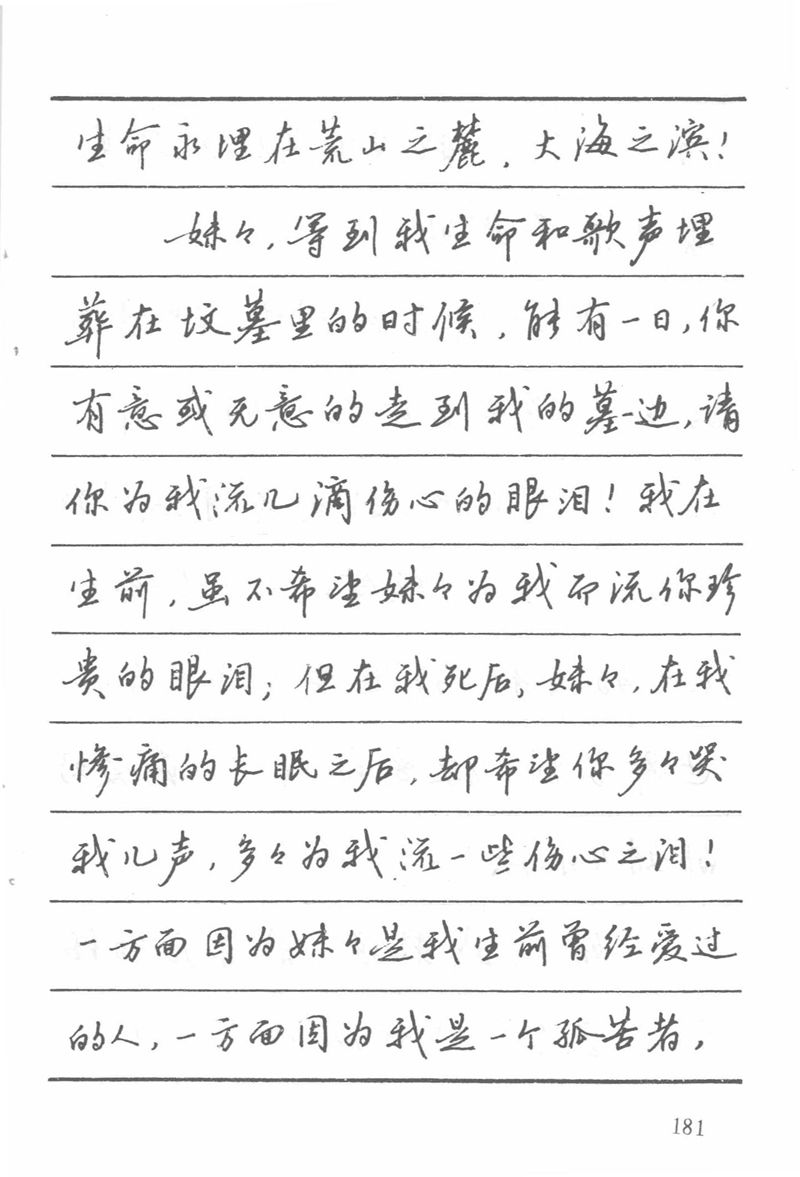 生命永埋在荒山之麓，大海之滨！
妹々，等到我生命和歌声埋
葬在坟墓里的时候，能有一日，你
有意或无意的走到我的墓边，请
你为我流几滴伤心的眼泪！我在
生前，虽不希望妹々为我而流你珍
贵的眼泪；但在我死后，妹々，在我
惨痛的长眠之后，却希望你多々哭
我几声，多々为我流一些伤心之泪！
一方面因为妹々是我生前曾经爱过
的人，一方面因为我是一个孤苦者，
181